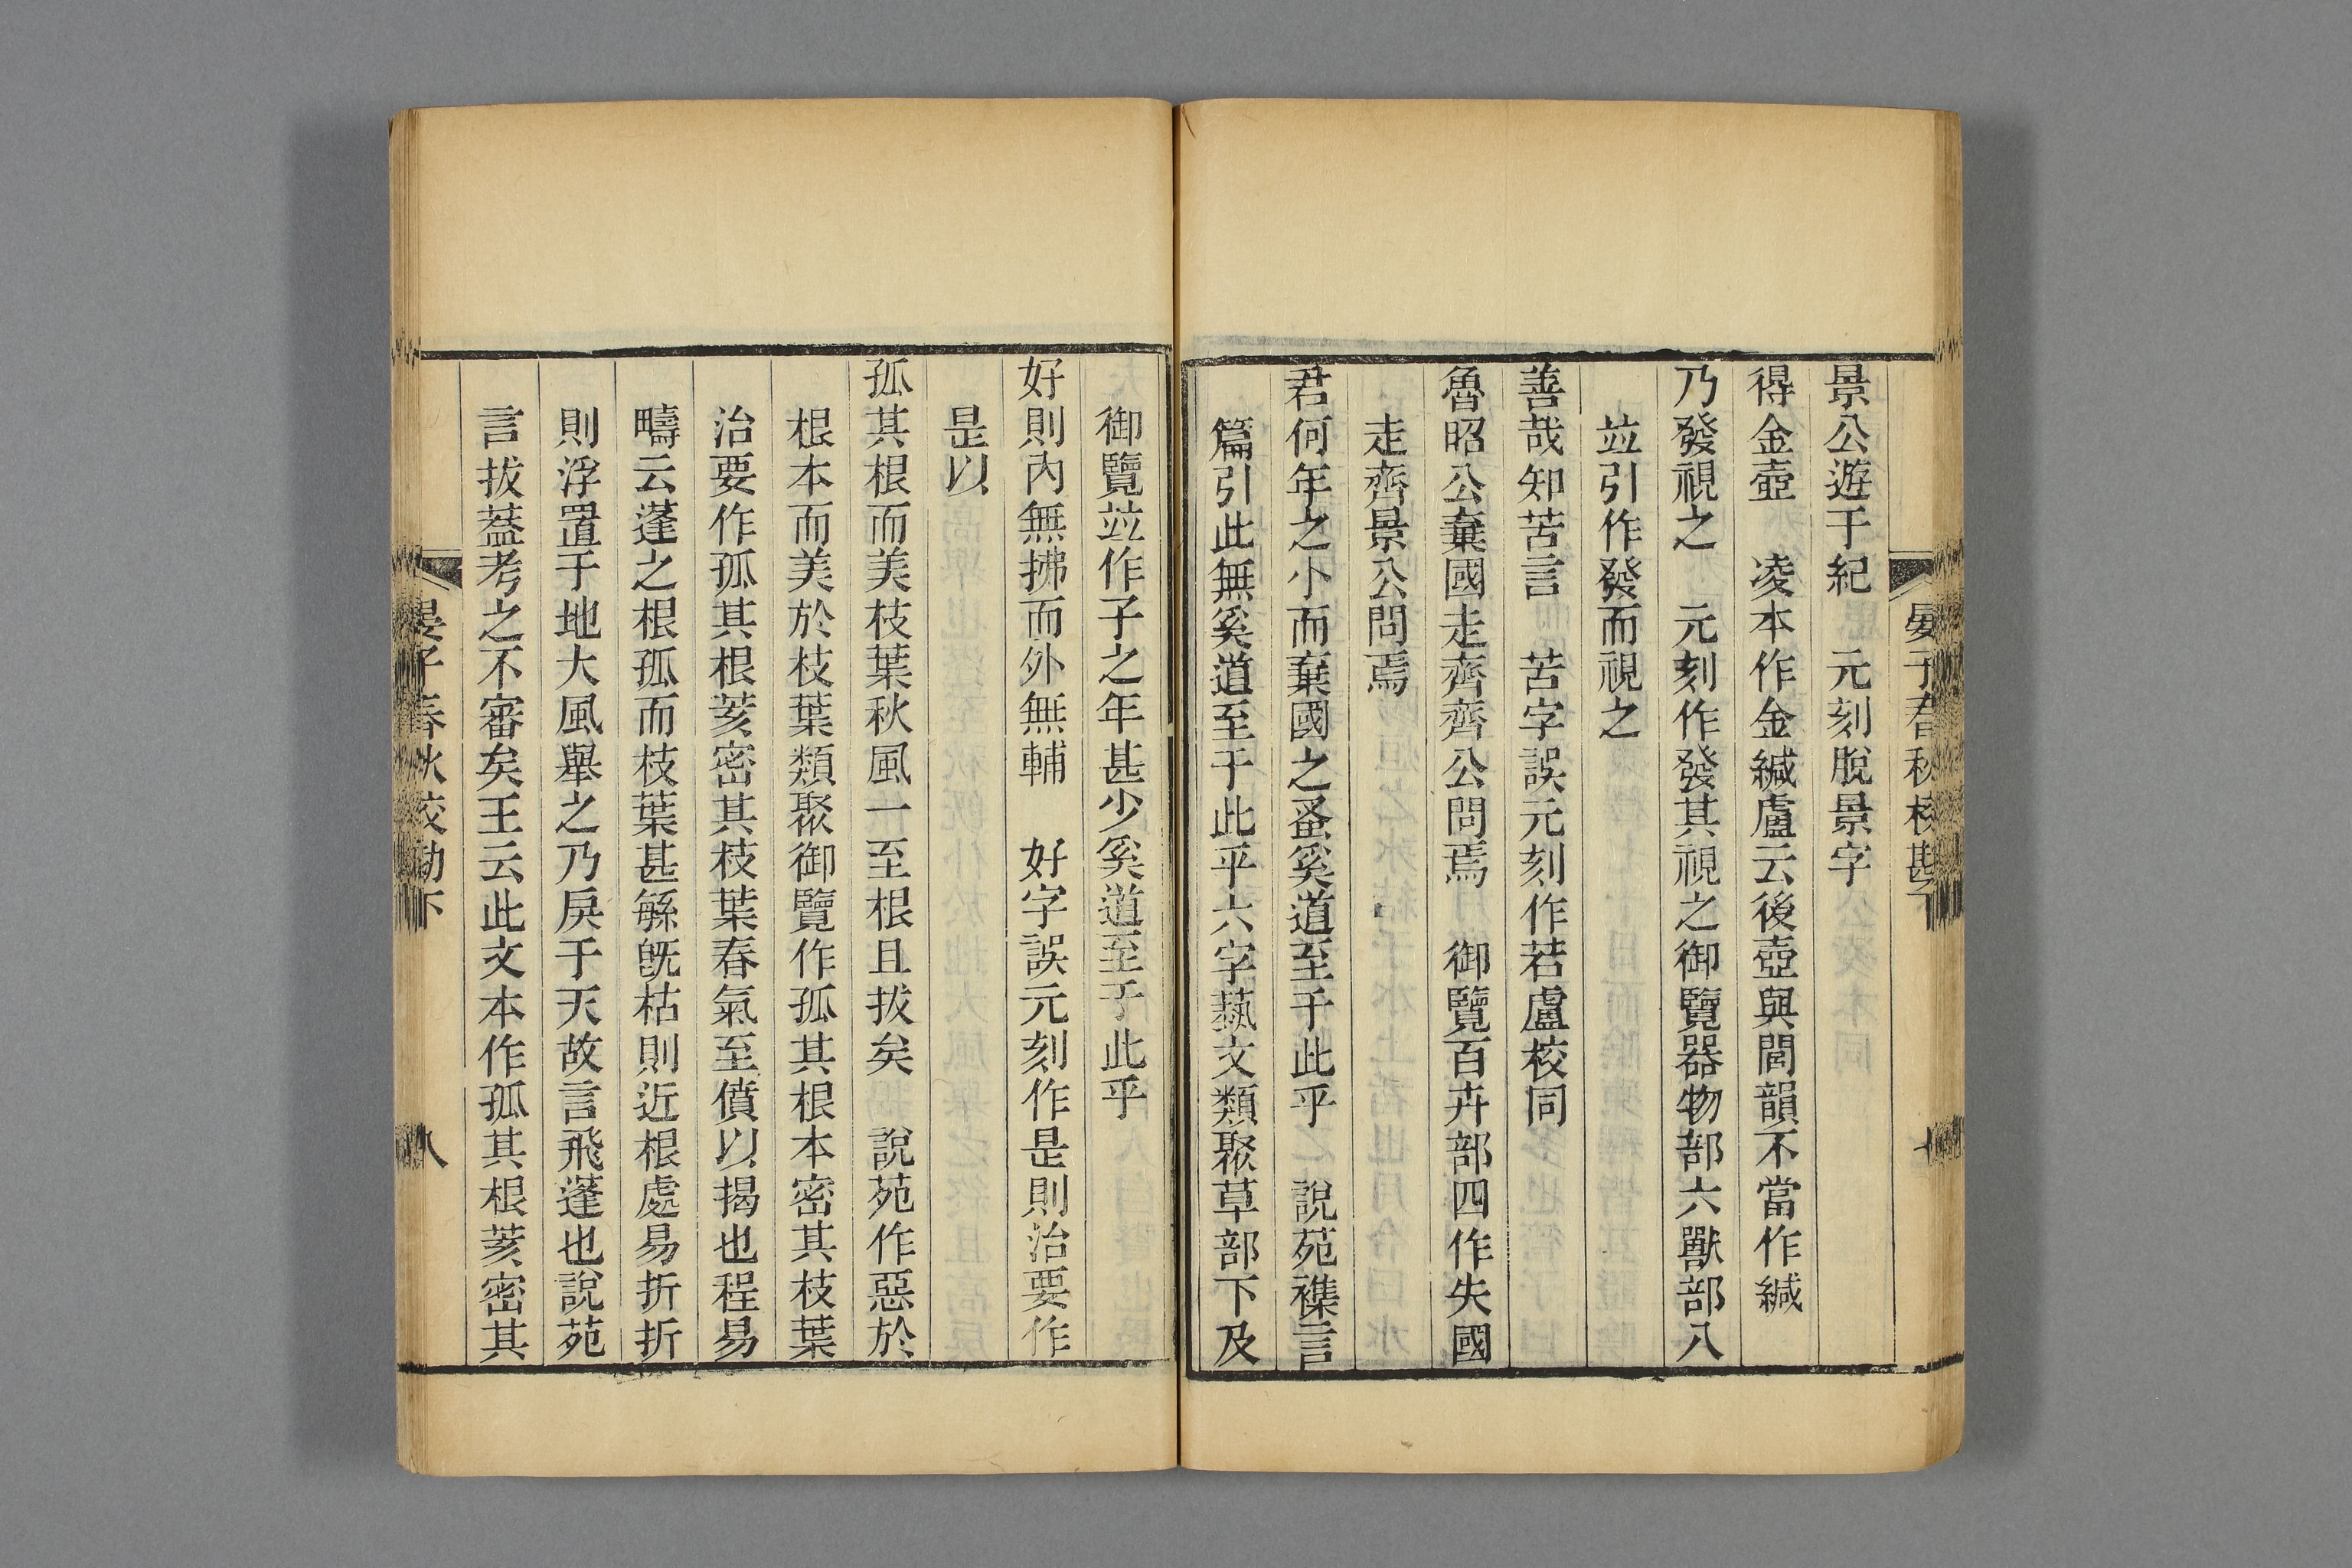 晏子春秋校勘下
景公遊于紀　元刻脫景字
得金壺　凌本作金緘盧云後壺與閭韻不當作緘
乃發視之　元刻作發其視之御覽器物部六獸部八
竝引作發而視之
善哉知苦言　苦字誤元刻作若盧校同
魯昭公棄國走齊齊公問焉　御覽百卉部四作失國
走齊景公問焉
君何年之小而棄國之蚤奚道至于此乎　說苑襍言
篇引此無奚道至于此乎六字藝文類聚草部下及
御覽竝作子之年甚少奚道至于此乎
好則內無拂而外無輔　好字誤元刻作是則治要作
是以
孤其根而美枝葉秋風一至根且拔矣　說苑作惡於
根本而美於枝葉類聚御覽作孤其根本密其枝葉
治要作孤其根荄密其枝葉春氣至僨以揭也程易
疇云蓬之根孤而枝葉甚緐旣枯則近根處易折折
則浮置于地大風舉之乃戾于天故言飛蓬也說苑
言拔蓋考之不審矣王云此文本作孤其根荄密其
晏子春秋校勘下
八